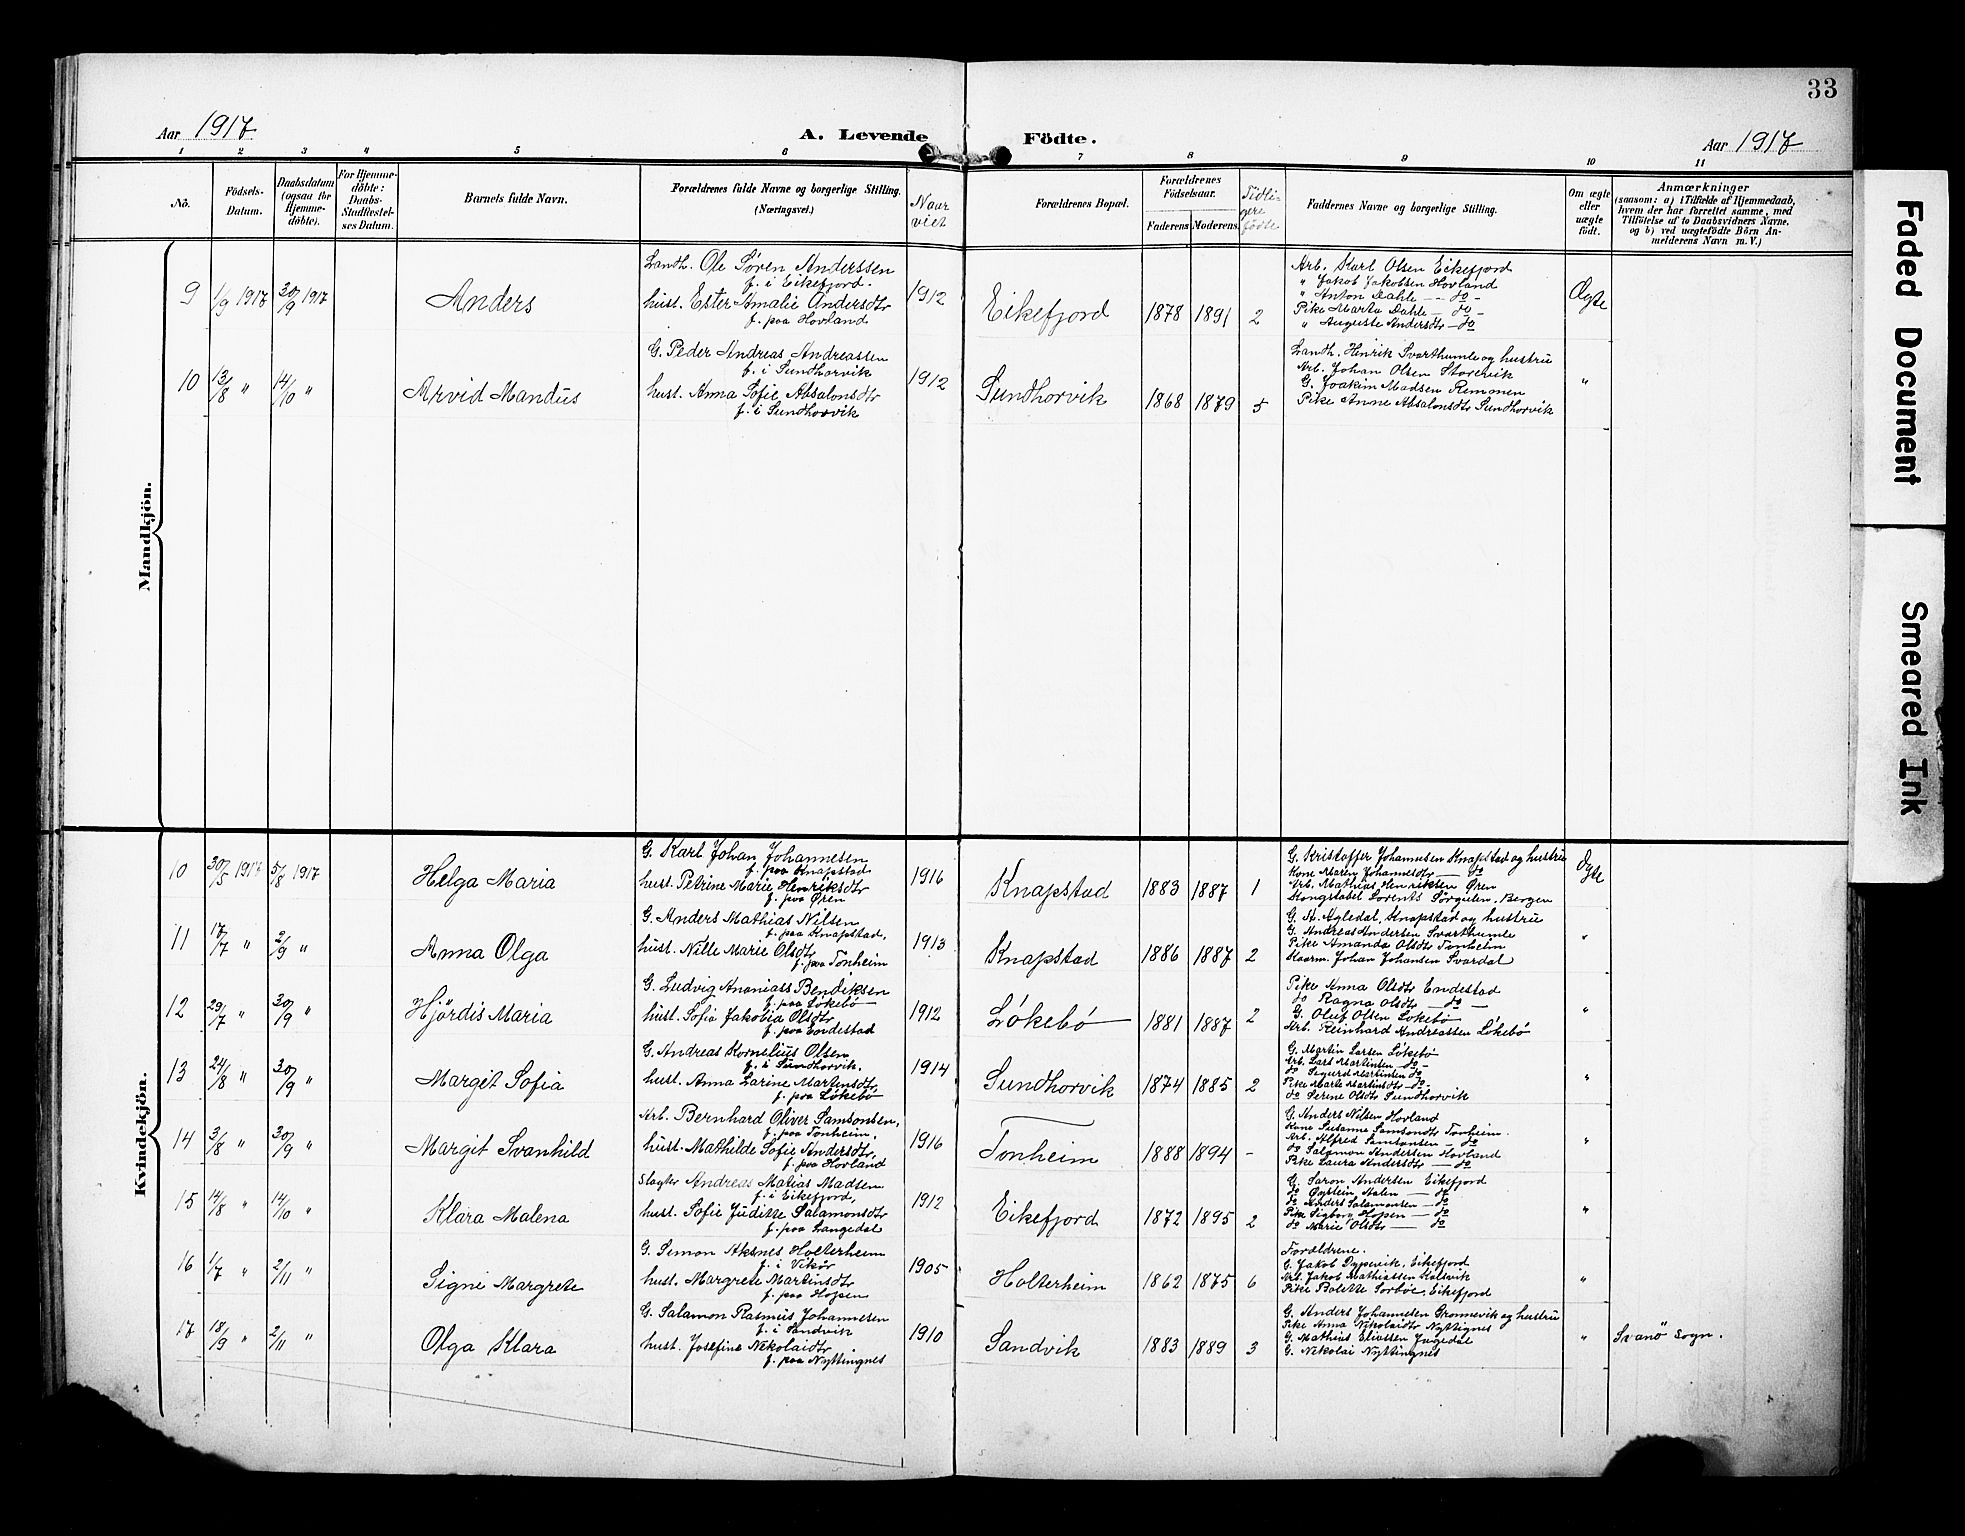 33
Aar 1917
A. Levende Födte.
Aar 1917
1 2 3 4 5 6 7 8 9 10 11
No.
Födsels-Datum.
Daabsdatum (ogsaa for Hjemme-döbte).
For Hjemme-döbte: Daabs-Stadfæstel-ses Datum.
Barnets fulde Navn.
Forældrenes fulde Navne og borgerlige Stilling. (Næringsvei.)
Naar viet
Forældrenes Bopæl.
Forældrenes Födselsaar.
Faderens Moderens
Tidligere födte
Faddernes Navne og borgerlige Stilling.
Om ægte eller uægte födt.
Anmærkninger
(saasom: a) i Tilfælde af Hjemmedaab,
hvem der har forrettet samme, med
Tilföielse af to Daabsvidners Navne,
og b) ved uægtefödte Börn An-
melderens Navn m. V.)
Mandkjön.
9 1/9 1917 30/9 1917 Anders
Landh. Ole Søren Anderssen
f. i Eikefjord.
hust. Ester Amalie Andersdtr
f. paa Hovland
1912 Eikefjord 1878 1891 2
Arb. Karl Olsen Eikefjord
" Jakob Jakobsen Hovland
" Anton Dahle - do -
Pike Marta Dahle - do -
" Auguste Andersdtr - do
Ægte
10 13/8 " 14/10 " Arvid Mandus
G. Peder Andreas Andreassen
f. i Sundhorvik
hust. Anna Sofie Absalonsdtr
f. i Sundhorvik
1912 Sundhorvik 1868 1879 5
Landh. Henrik Svarthumle og hustru
Arb. Johan Olsen Storevik
G. Joakim Madsen Remmen
Pike Anne Absalonsdtr Sundhorvik
"
Kvindekjön.
10 30/5 1917 5/8 1917 Helga Maria
G. Karl Johan Johannesen
f. paa Knapstad
hust. Petrine Marie Henriksdtr
f. paa Øren
1916 Knapstad 1883 1887 1
G. Kristoffer Johannesen Knapstad og hustru
Kone Maren Johannesdtr - do
Arb. Mathias Henriksen Øren
Konstabel Lorents Sørgulen, Bergen
Ægte
11 17/7 " 2/9 " Anna Olga
G. Anders Mathias Nilsen
f. paa Knapstad,
hust. Nille Marie Olsdtr
f. paa Tonheim
1913 Knapstad 1886 1887 2
G. A. Agledal, Knapstad og hustru
G. Andreas Andersen Svarthumle
Pike Amanda Olsdtr Tonheim
Johan Johansen Svardal
"
12 29/7 " 30/9 " Hjördis Maria
G. Ludvig Ananiass Bendiksen
f. paa Løkebø
hust. Sofia Jakobia Olsdtr
f. paa Endestad
1912 Løkebø 1881 1887 2
Pike Anna Olsdtr Endestad
do Ragna Olsdtr - do -
G. Oluf Olsen Løkebø
Arb. Reinhard Andreassen Løkebø
"
13 24/8 " 30/9 " Margit Sofia
G. Andreas Kornelius Olsen
f. i Sundhorvik.
hust. Anna Larine Martinsdtr,
f. paa Løkebø
1914 Sundhorvik 1874 1885 2
G. Martin Larsen Løkebø
Arb. Lars Martinsen - do -
do Sigurd Martinsen do -
Pike Marte Martinsdtr - do -
do Serine Olsdtr Sundhorvik
"
14 3/8 " 30/9 " Margit Svanhild
Arb. Bernhard Oliver Samsonsen,
f. paa Tonheim,
hust. Mathilde Sofie Andersdtr,
f. paa Hovland
1916 Tonheim 1888 1894 -
G. Anders Nilsen Hovland
Kone Susanne Samsondtr Tonheim.
Arb. Alfred Samsonsen - do
do Salamon Andersen Hovland
Pike Laura Andersdtr - do
"
15 14/8 " 14/10 " Klara Malena
Slagter Andreas Matias Madsen
f. i Eikefjord,
hust. Sofie Juditte Salamonsdtr
f. paa Langedal
1912 Eikefjord 1872 1895 2
G. Saron Andersen Eikefjord
do Øystein Aalen - do
do Anders Salamonsen - do
Pike Sigborg Hopen - do
do Marie Olsdtr - do
"
16 1/7 " 2/11 " Signi Margrete
G. Simon Aksnes Holterheim
f. i Vikör
hust. Margrete Martinsdtr
f. paa Hopen
1905 Holterheim 1862 1875 6
Forældrene.
G. Jakob Dypevik, Eikefjord
Arb. Jakob Mathiassen Kalsvik
Pike Bolette Sørbøe, Eikefjord
"
17 18/9 " 2/11 " Olga Klara
G. Salamon Rasmus Johannesen
f. i Sandvik
hust. Josefine Nekolaidtr.
f. paa Nyttingnes
1910 Sandvik 1883 1889 3
G. Anders Johannesen Grønnevik og hustru
Pike Anna Nikolaidtr Nyttignes
G. Mathias Eliassen
G. Nikolai Nyttingnes
"
Svanö sogn.
Faded Document
Smeared Ink